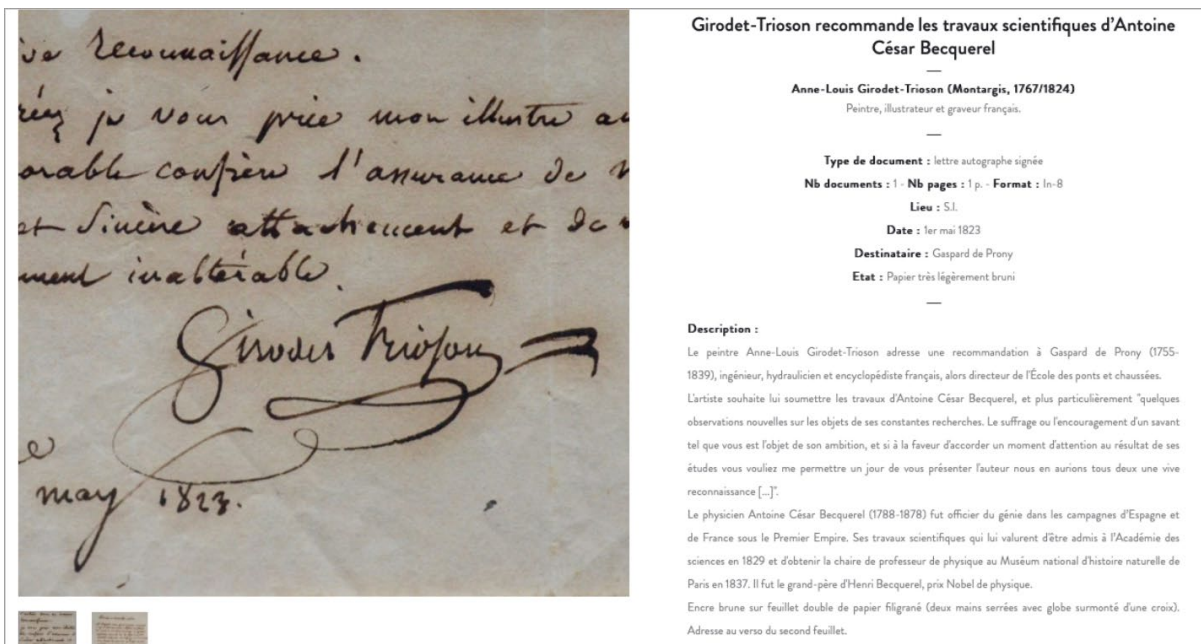 ive reconnaissance.
réez je vous prie mon illustre
orable confrère l'assurance de
et sincère attachement et de
ment inaltérable.
Girodet Trioson
may 1823.
Girodet-Trioson recommande les travaux scientifiques d'Antoine
César Becquerel
Anne-Louis Girodet-Trioson (Montargis, 1767/1824)
Peintre, illustrateur et graveur français.
Type de document : lettre autographe signée
Nb documents : 1 - Nb pages : 1 p. - Format : In-8
Lieu : S.l.
Date : 1er mai 1823
Destinataire : Gaspard de Prony
Etat : Papier très légèrement bruni
Description :
Le peintre Anne-Louis Girodet-Trioson adresse une recommandation à Gaspard de Prony (1755-
1839), ingénieur, hydraulicien et encyclopédiste français, alors directeur de l'École des ponts et chaussées.
L'artiste souhaite lui soumettre les travaux d'Antoine César Becquerel, et plus particulièrement "quelques
observations nouvelles sur les objets de ses constantes recherches. Le suffrage ou l'encouragement d'un savant
tel que vous est l'objet de son ambition, et si à la faveur d'accorder un moment d'attention au résultat de ses
études vous vouliez me permettre un jour de vous présenter l'auteur nous en aurions tous deux une vive
reconnaissance [...]".
Le physicien Antoine César Becquerel (1788-1878) fut officier du génie dans les campagnes d'Espagne et
de France sous le Premier Empire. Ses travaux scientifiques qui lui valurent d'être admis à l'Académie des
sciences en 1829 et d'obtenir la chaire de professeur de physique au Muséum national d'histoire naturelle de
Paris en 1837. Il fut le grand-père d'Henri Becquerel, prix Nobel de physique.
Encre brune sur feuillet double de papier filigrané (deux mains serrées avec globe surmonté d'une croix).
Adresse au verso du second feuillet.